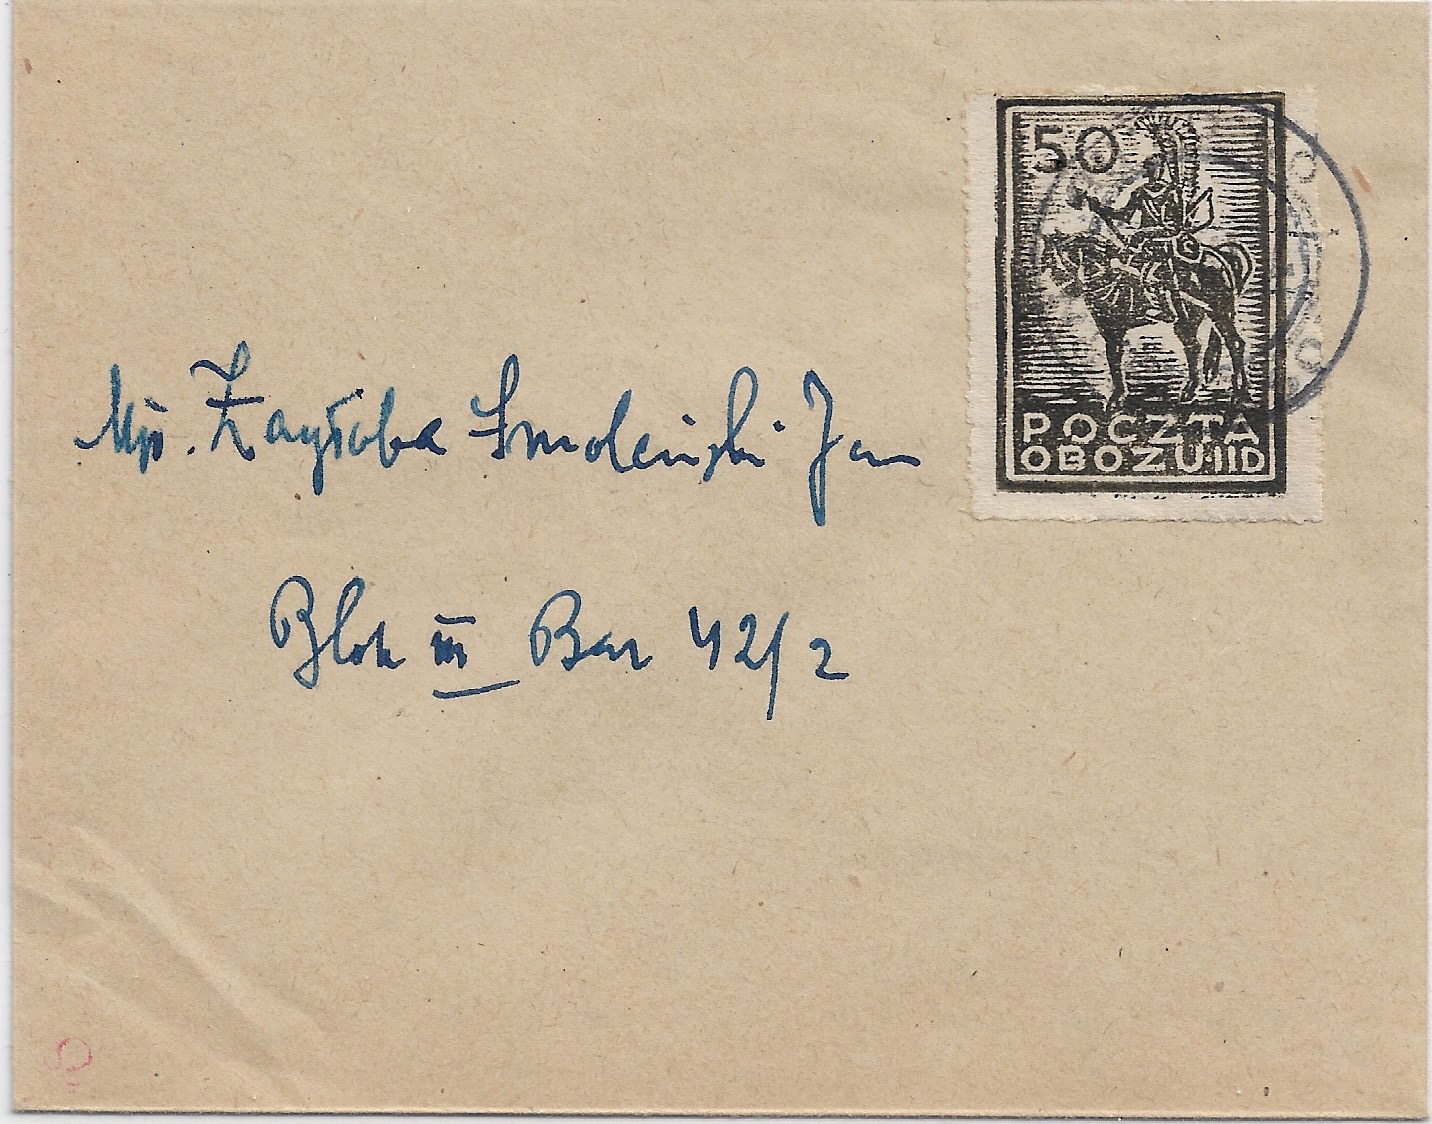 50
POCZTA
OBOZU·IID
Mjr. Zagłoba Smoleński Jan
Blok III Bar 42/2